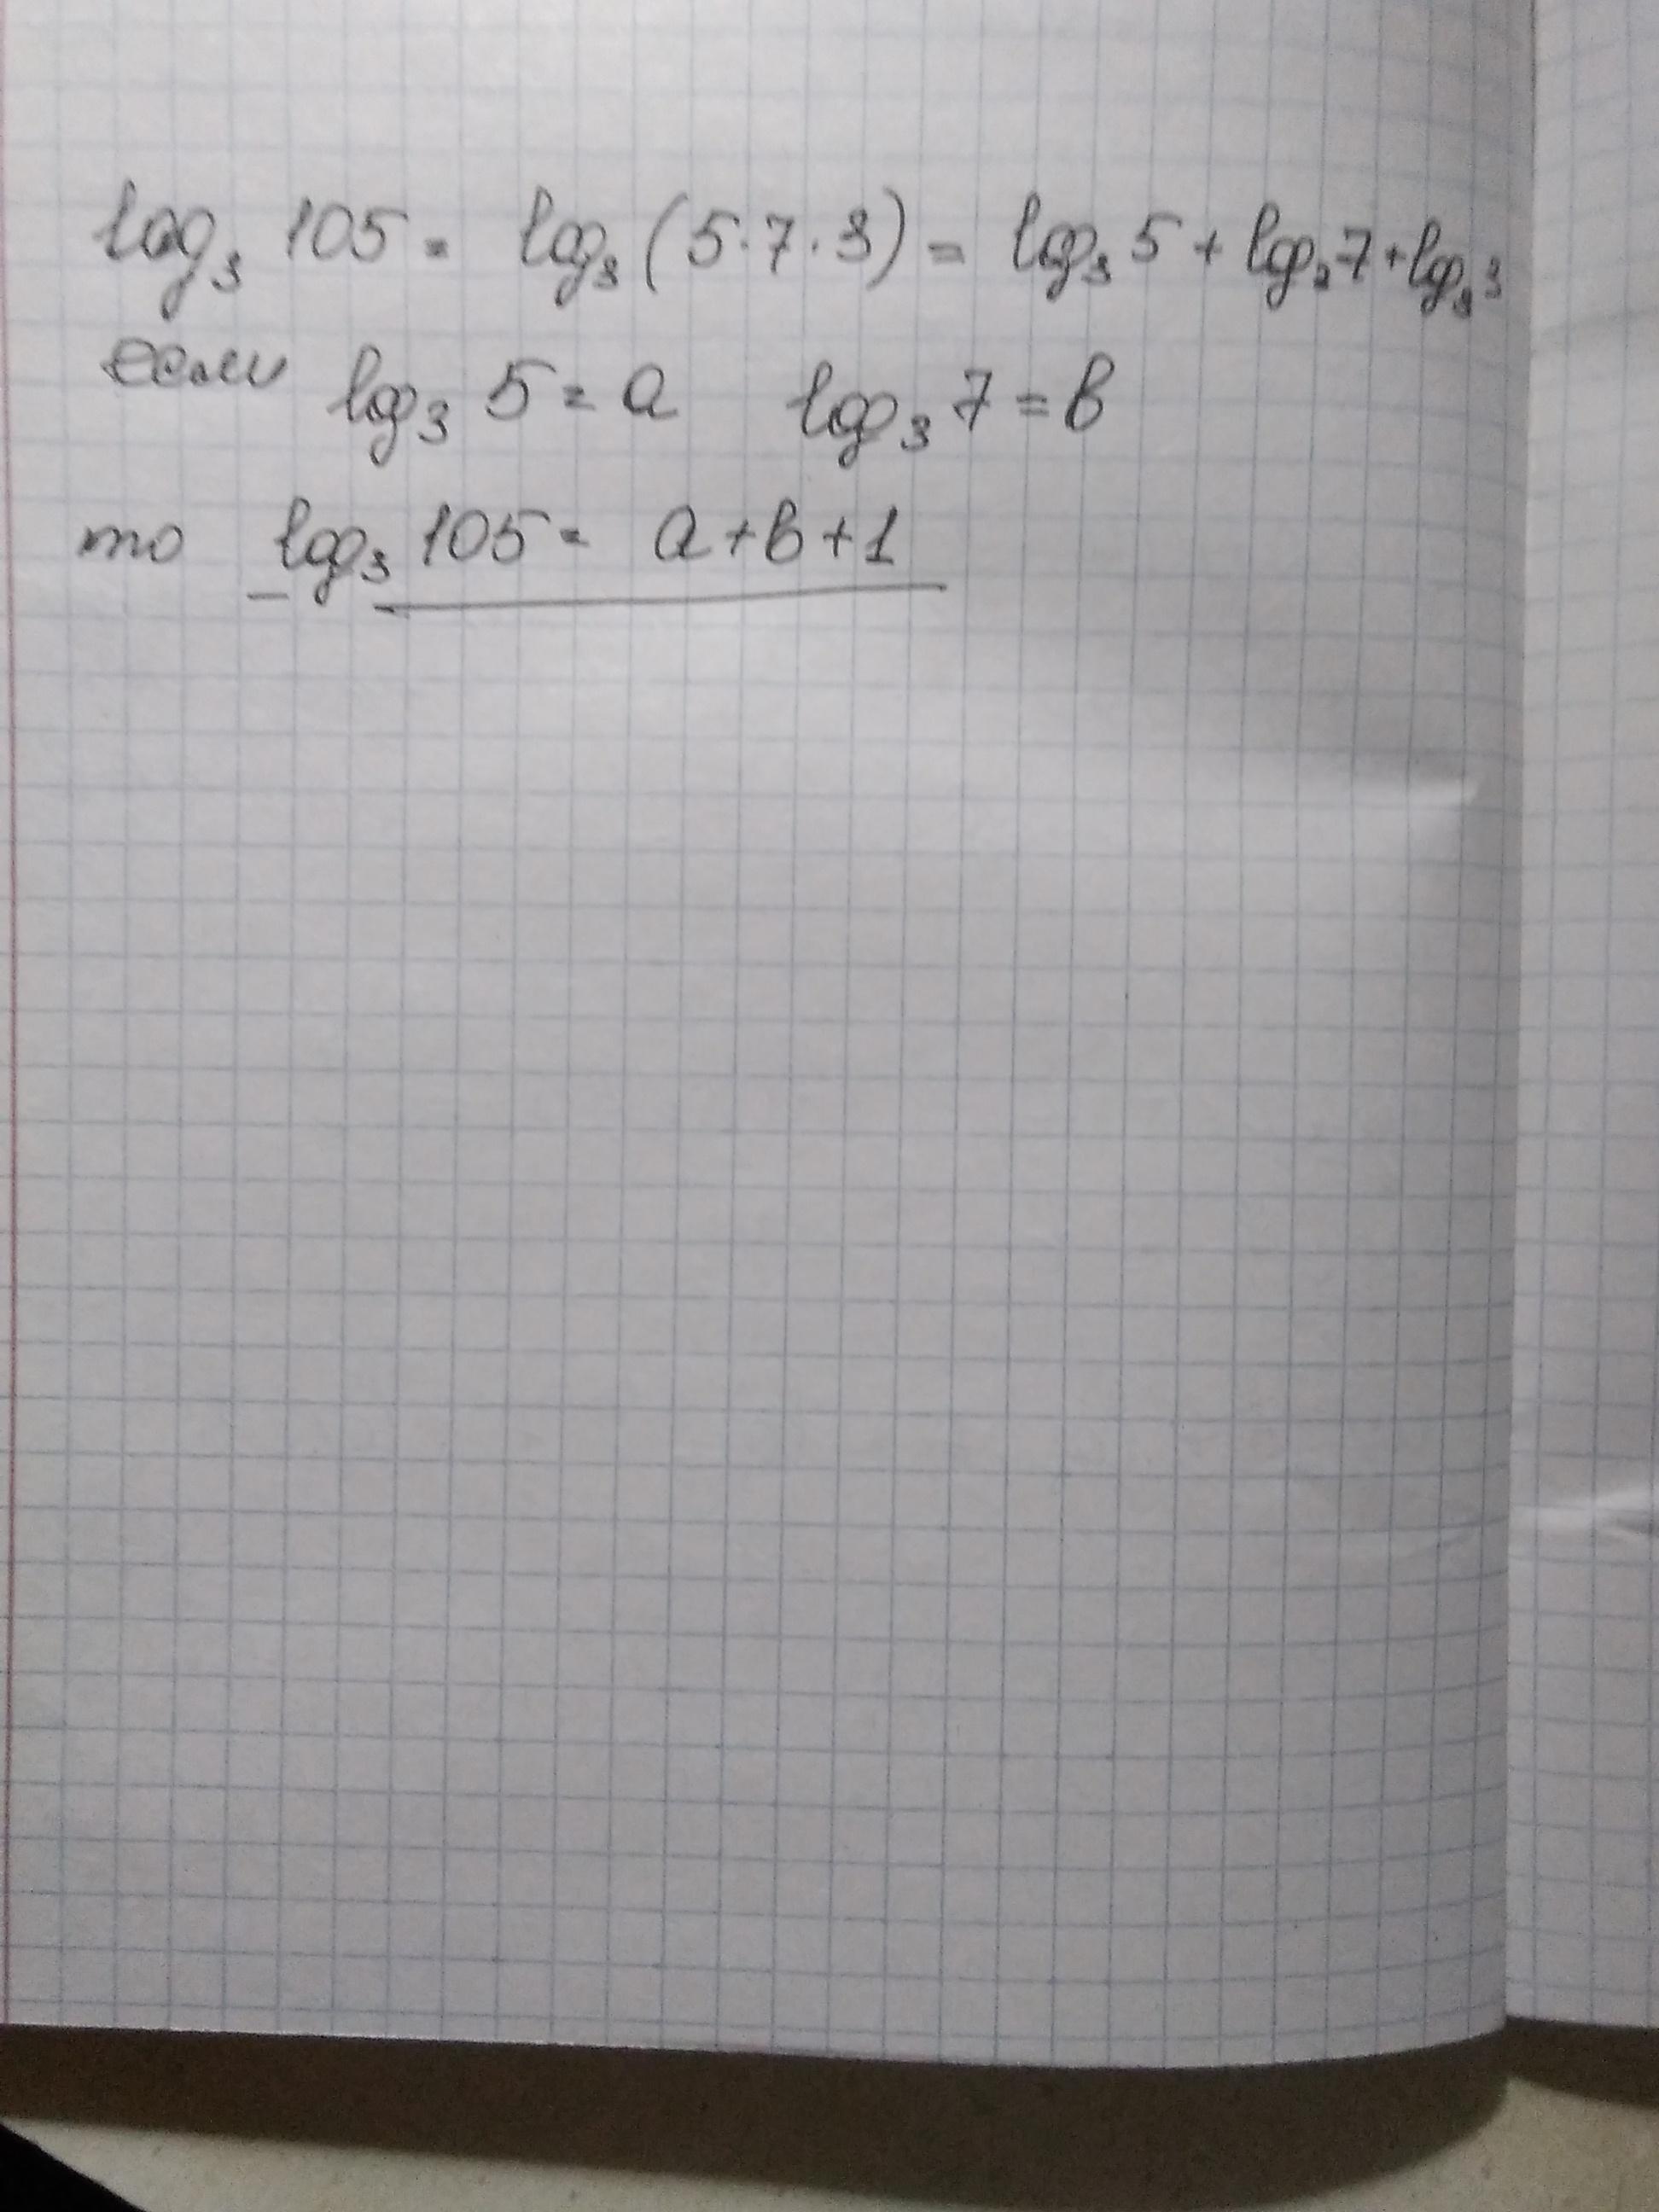 log₃ 105 = log₃ (5·7·3) = log₃ 5 + log₃ 7 + log₃ 3
если log₃ 5 = a log₃ 7 = b
то log₃ 105 = a + b + 1